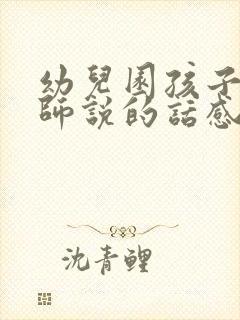 幼兒園孩子
師說的話感
沈青鯉